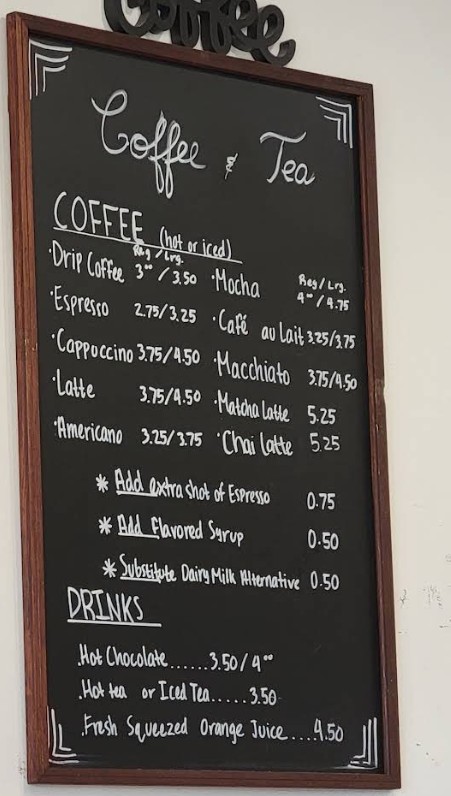 Coffee
Coffee & Tea
COFFEE (hot or iced)
Reg / Lrg.
·Drip Coffee 3⁰⁰ / 3.50
·Espresso 2.75/3.25
·Cappuccino 3.75/4.50
·Latte 3.75/4.50
·Americano 3.25/3.75
Reg/Lrg.
·Mocha 4⁰⁰/4.75
·Café au Lait 3.25/3.75
·Macchiato 3.75/4.50
·Matcha Latte 5.25
·Chai Latte 5.25
* Add extra shot of Espresso 0.75
* Add Flavored Syrup 0.50
* Substitute Dairy Milk Alternative 0.50
DRINKS
.Hot Chocolate......3.50/4⁰⁰
.Hot tea or Iced Tea.....3.50
.Fresh Squeezed Orange Juice....4.50